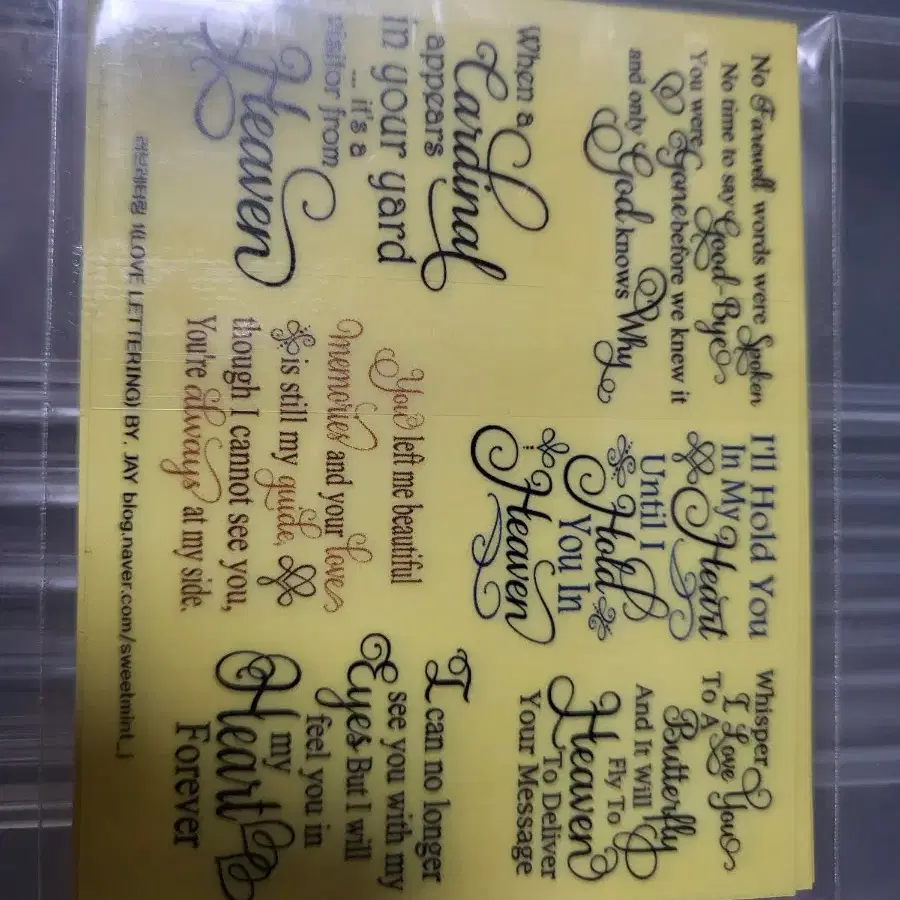 No Farewell words were Spoken
No time to say Good-Bye
You were Gone before we knew it
and only God knows Why
I'll Hold You
In My Heart
Until I
Hold
You In
Heaven
Whisper
I Love You
To A
Butterfly
And It Will
Fly To
Heaven
To Deliver
Your Message
When a
Cardinal
appears
in your yard
... it's a
visitor from
Heaven
You left me beautiful
memories and your love
is still my guide,
though I cannot see you,
You're always at my side.
I can no longer
see you with my
Eyes But I will
feel you in
my
Heart
Forever
러브레터링 1(LOVE LETTERING) BY. JAY blog.naver.com/sweetmint_j